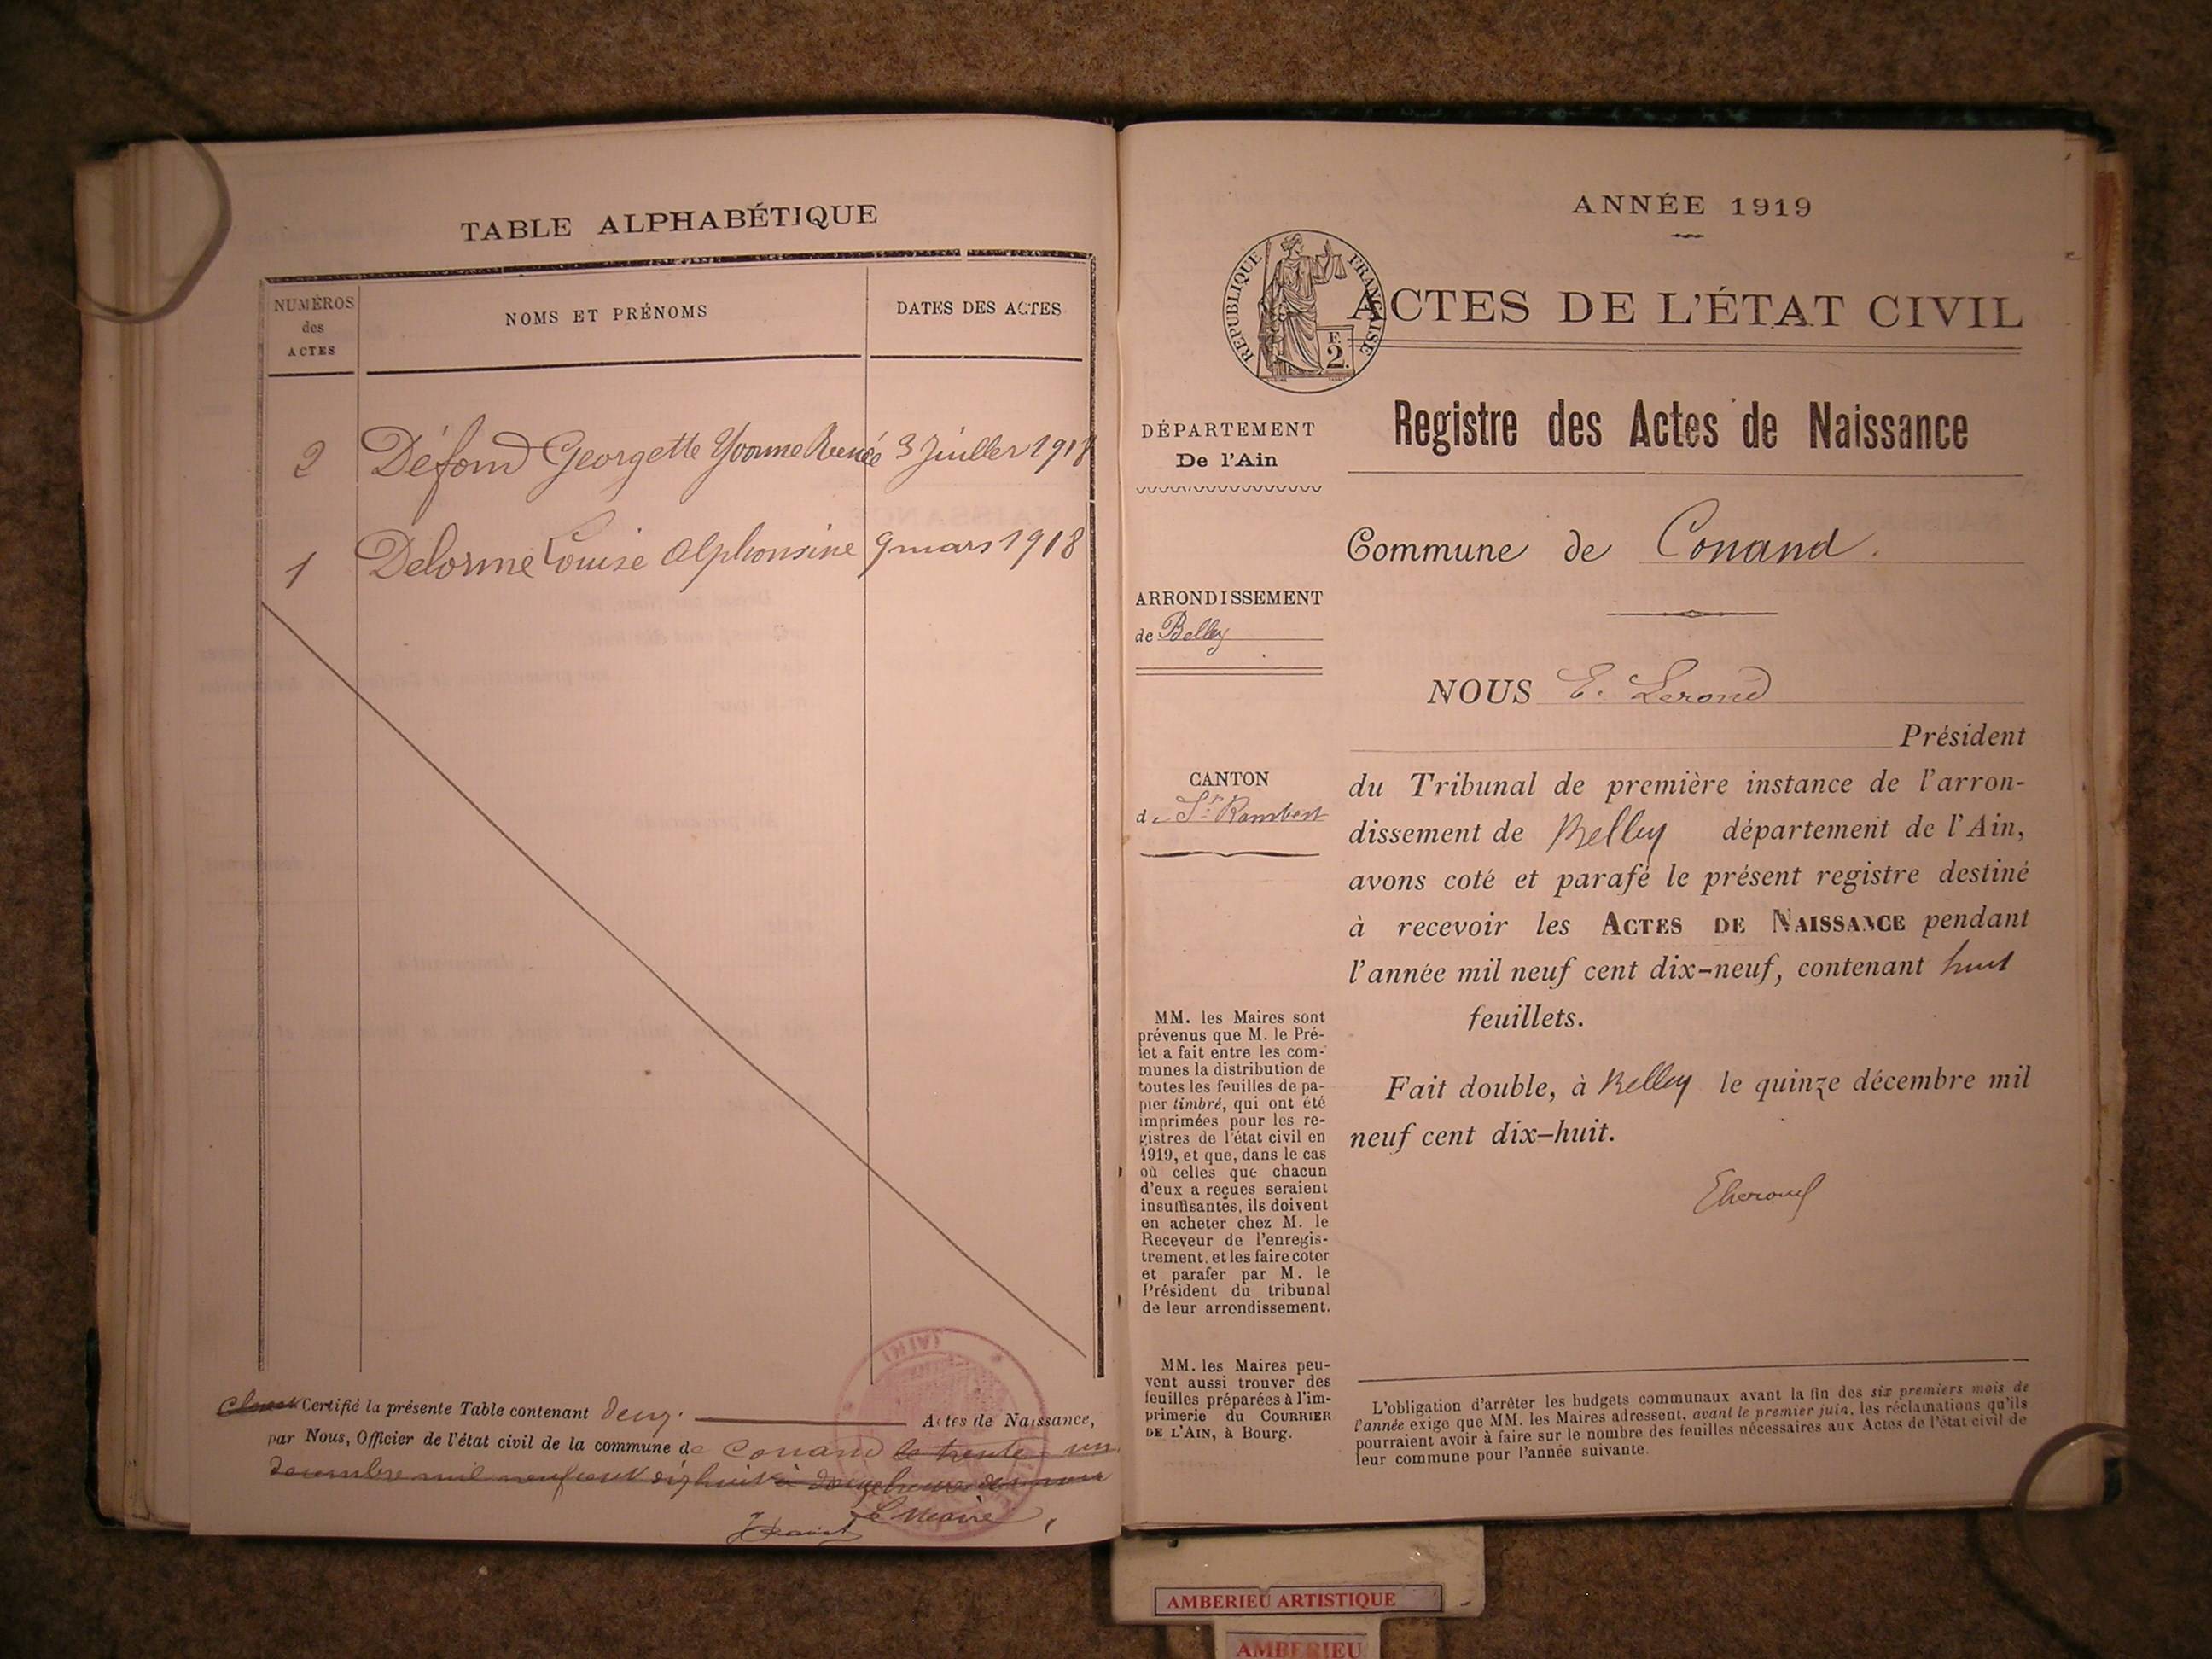 TABLE ALPHABÉTIQUE
NUMÉROS
des
ACTES
NOMS ET PRÉNOMS
DATES DES ACTES
2 Défond Georgette Yvonne Renée 3 Juillet 1918
1 Delorme Louise Alphonsine 9 mars 1918
Certifié la présente Table contenant deux. Actes de Naissance,
par Nous, Officier de l'état civil de la commune de Conand le trente-un
décembre mil neuf cent dix huit à
Le Maire
(AIN)
ANNÉE 1919
REPUBLIQUE FRANÇAISE
F.
2.
ACTES DE L'ÉTAT CIVIL
Registre des Actes de Naissance
DÉPARTEMENT
De l'Ain
Commune de Conand.
ARRONDISSEMENT
de Belley
NOUS E. Lerond
Président
CANTON
de St Rambert
du Tribunal de première instance de l'arron-
dissement de Belley département de l'Ain,
avons coté et parafé le présent registre destiné
à recevoir les ACTES DE NAISSANCE pendant
l'année mil neuf cent dix-neuf, contenant huit
feuillets.
Fait double, à Belley le quinze décembre mil
neuf cent dix-huit.
ELerond
MM. les Maires sont
prévenus que M. le Pré-
fet a fait entre les com-
munes la distribution de
toutes les feuilles de pa-
pier timbré, qui ont été
imprimées pour les re-
gistres de l'état civil en
1919, et que, dans le cas
où celles que chacun
d'eux a reçues seraient
insuffisantes, ils doivent
en acheter chez M. le
Receveur de l'enregis-
trement, et les faire coter
et parafer par M. le
Président du tribunal
de leur arrondissement.
MM. les Maires peu-
vent aussi trouver des
feuilles préparées à l'im-
primerie du COURRIER
DE L'AIN, à Bourg.
L'obligation d'arrêter les budgets communaux avant la fin des six premiers mois de
l'année exige que MM. les Maires adressent, avant le premier juin, les réclamations qu'ils
pourraient avoir à faire sur le nombre des feuilles nécessaires aux Actes de l'état civil de
leur commune pour l'année suivante.
AMBERIEU ARTISTIQUE
AMBERIEU